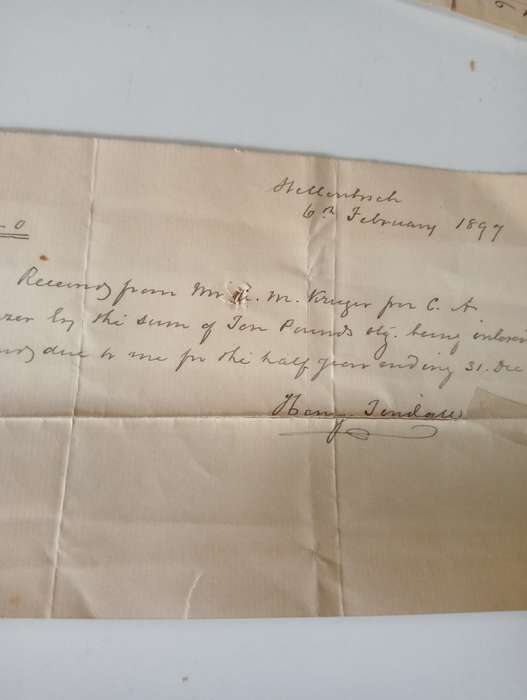 Stellenbosch
6th February 1897
0
Received from Mr M. Kruger for C. A.
the sum of Ten Pounds stg. being
due to me for the half year ending 31. Dec
Harry Tindall